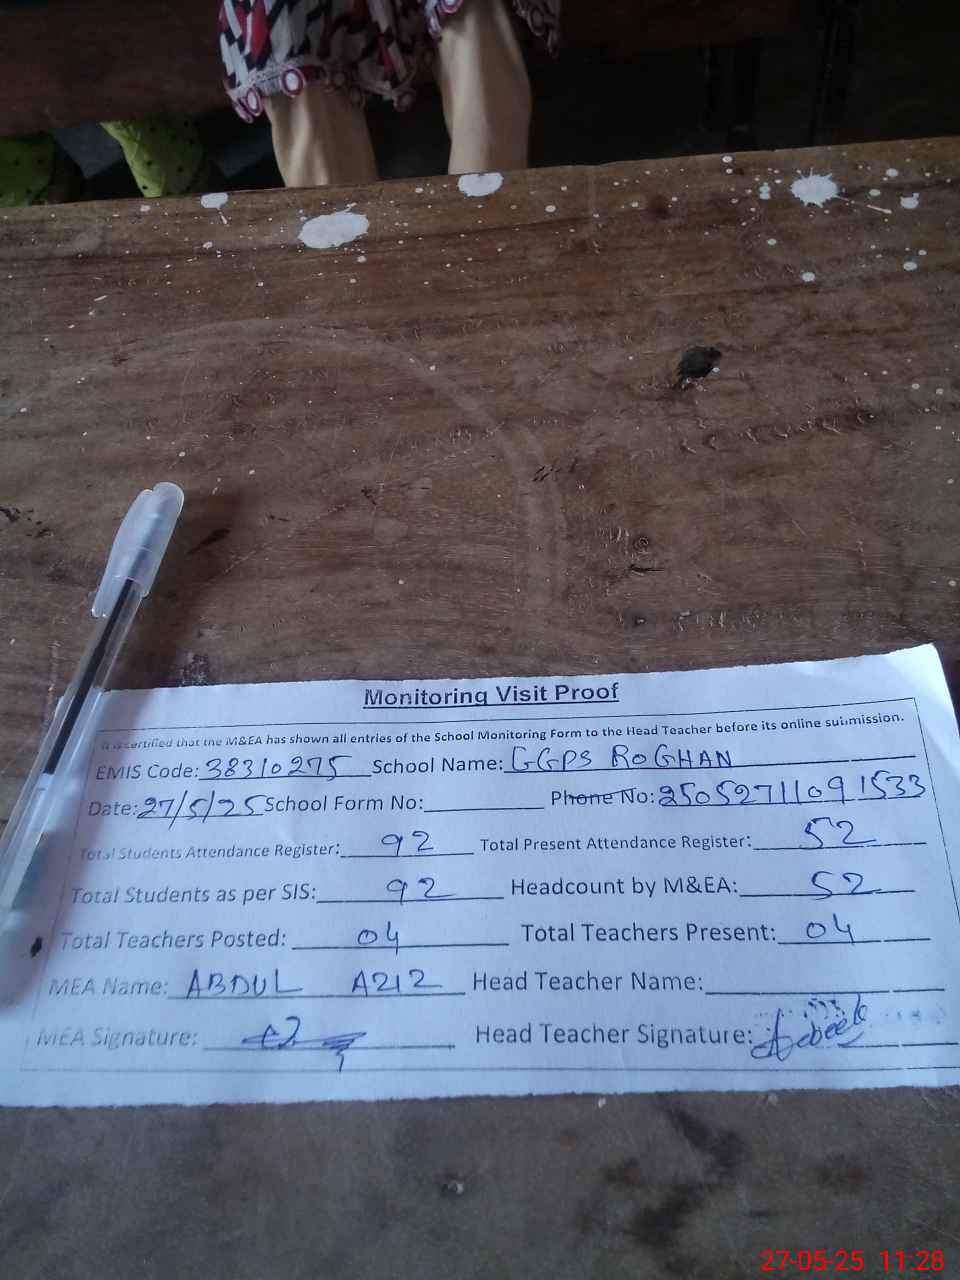 Monitoring Visit Proof
It is certified that the M&EA has shown all entries of the School Monitoring Form to the Head Teacher before its online submission.
EMIS Code: 38310275 School Name: GGPS ROGHAN
Date: 27/5/25 School Form No: Phone No: 25052711091533
Total Students Attendance Register: 92 Total Present Attendance Register: 52
Total Students as per SIS: 92 Headcount by M&EA: 52
Total Teachers Posted: 04 Total Teachers Present: 04
MEA Name: ABDUL AZIZ Head Teacher Name:
MEA Signature: Head Teacher Signature:
27-05-25 11:28